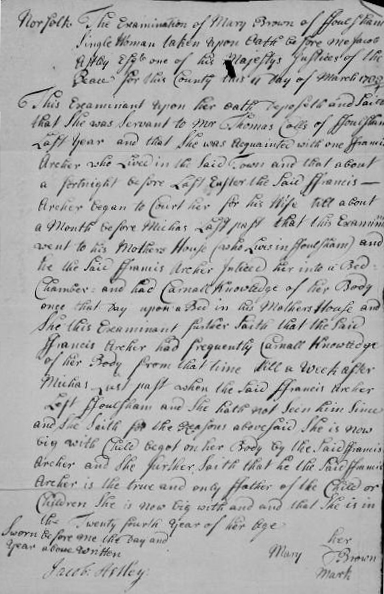 Norfolk The Examination of Mary Brown of ffoulsham
Single Woman taken upon Oath before me Jacob
Astley Esqr one of his Majestys Justices of the
Peace for this County this 11 Day of March
This Examinant upon her oath Deposeth and Saith
that She was Servant to Mr Thomas Calls of ffoulsham
Last Year and that She was Acquainted with one ffrancis
Archer who Lived in the Said Town and that about
a fortnight before Last Easter the Said ffrancis
Archer began to Court her for his Wife till about
a Month before Michas Last past that this Examint
went to his Mothers House (who Lives in ffoulsham) and
he the Said ffrancis Archer Intic'd her into a Bed=
Chamber: and had Carnall Knowledge of her Body
once that Day upon a Bed in his Mothers House and
She this Examinant further Saith that the Said
ffrancis Archer had frequently Carnall Knowledge
of her Body from that time till a Week after
Michas Last past when the Said ffrancis Archer
Left ffoulsham and She hath not Seen him Since
and She Saith for the Reasons abovesaid She is now
big with Child begot on her Body by the Said ffrancis
Archer and She further Saith that he the Said ffrancis
Archer is the true and only ffather of the Child or
Children She is now big with and and that She is in
the Twenty fourth Year of her Age
Sworn before me the Day and
Year above written
her
Mary Brown
Mark
Jacob Astley.